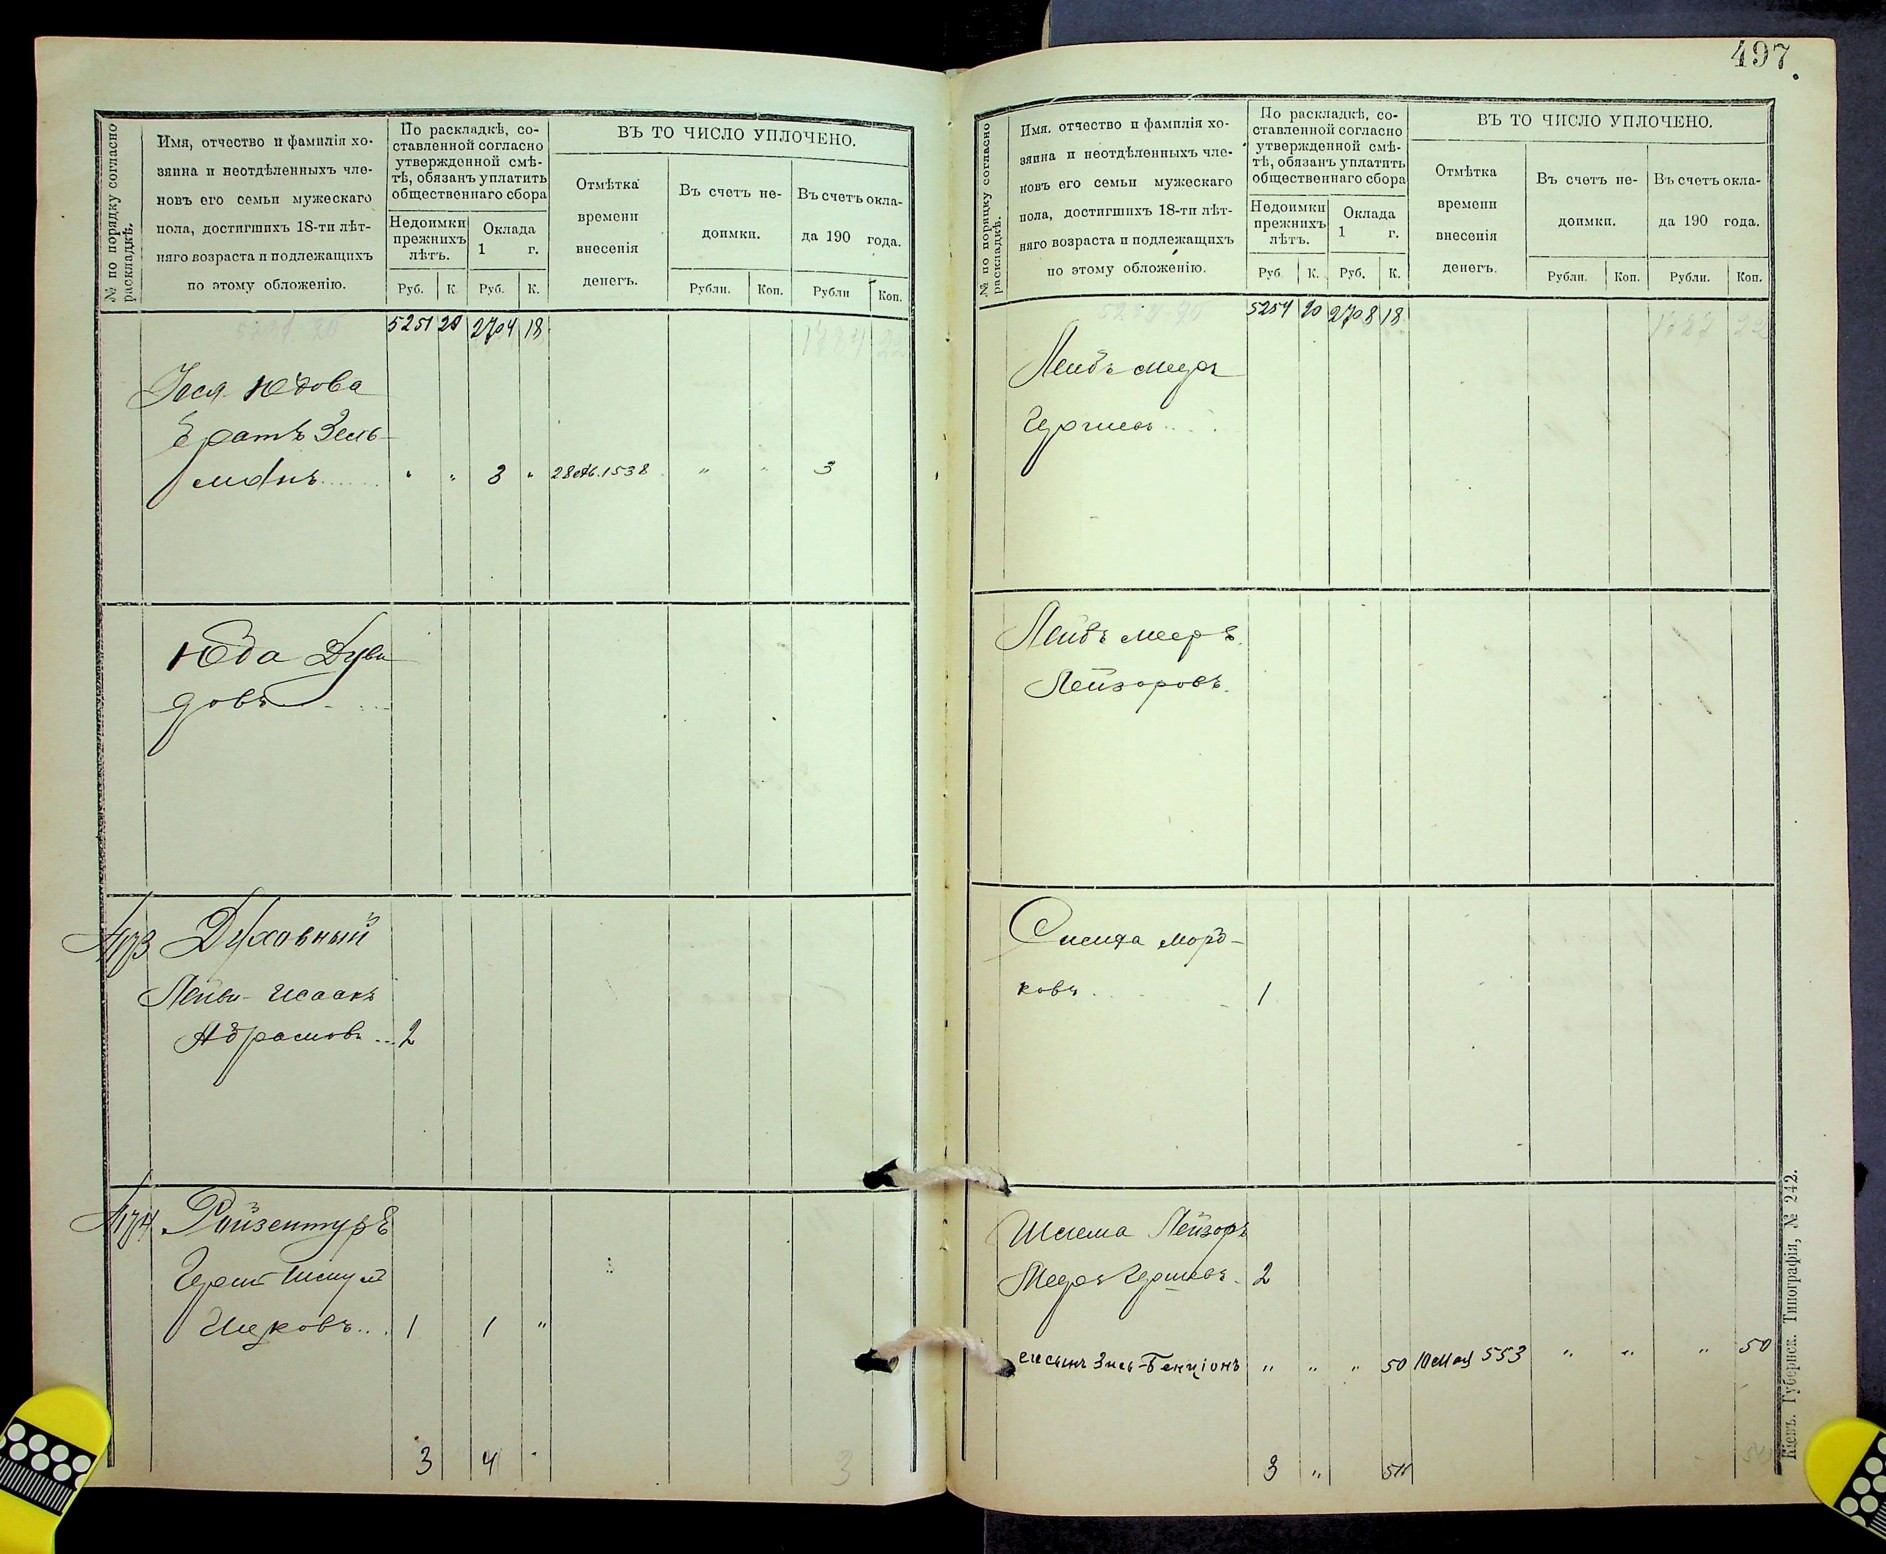 № по порядку согласно раскладкѣ.
Имя, отчество и фамилія хо-
зяина и неотдѣленныхъ чле-
новъ его семьи мужескаго
пола, достигшихъ 18-ти лѣт-
няго возраста и подлежащихъ
по этому обложенію.
По раскладкѣ, со-
ставленной согласно
утвержденной смѣ-
тѣ, обязанъ уплатить
общественнаго сбора
Недоимки
прежнихъ
лѣтъ.
Оклада
1 г.
Руб. К. Руб. К.
ВЪ ТО ЧИСЛО УПЛОЧЕНО.
Отмѣтка
времени
внесенія
денегъ.
Въ счетъ не-
доимки.
Въ счетъ окла-
да 190 года.
Рубли. Коп. Рубли Коп.
5251 20 2704 18
Іося Юдова
братъ Зель-
манъ " " 3 " 28 1538 " " 3
Юда Дуви
довъ
№173 Духовный
Лейви-Исаакъ
Абрамовъ 2
№174 Ройзентуръ
Гершъ Шмуль
Ицковъ 1 1 "
3 4 "
3
497.
№ по порядку согласно раскладкѣ.
Имя. отчество и фамилія хо-
зяина и неотдѣленныхъ чле-
новъ его семьи мужескаго
пола, достигшихъ 18-ти лѣт-
няго возраста и подлежащихъ
по этому обложенію.
По раскладкѣ, со-
ставленной согласно
утвержденной смѣ-
тѣ, обязанъ уплатить
общественнаго сбора
Недоимки
прежнихъ
лѣтъ.
Оклада
1 г.
Руб. К. Руб. К.
ВЪ ТО ЧИСЛО УПЛОЧЕНО.
Отмѣтка
времени
внесенія
денегъ.
Въ счетъ не-
доимки.
Въ счетъ окла-
да 190 года.
Рубли. Коп. Рубли. Коп.
5254 20 2708 18
Лейбъ Меръ
Гершковъ
Лейбъ Мееръ
Лейзоровъ
Симха Морд-
ковъ 1
Шлема Лейзоръ
Меръ Гершковъ 2
Бенціонъ " " " 50 10 Мая 553 " " " 50
3 "
Кіевъ. Губернск. Типографія, № 242.